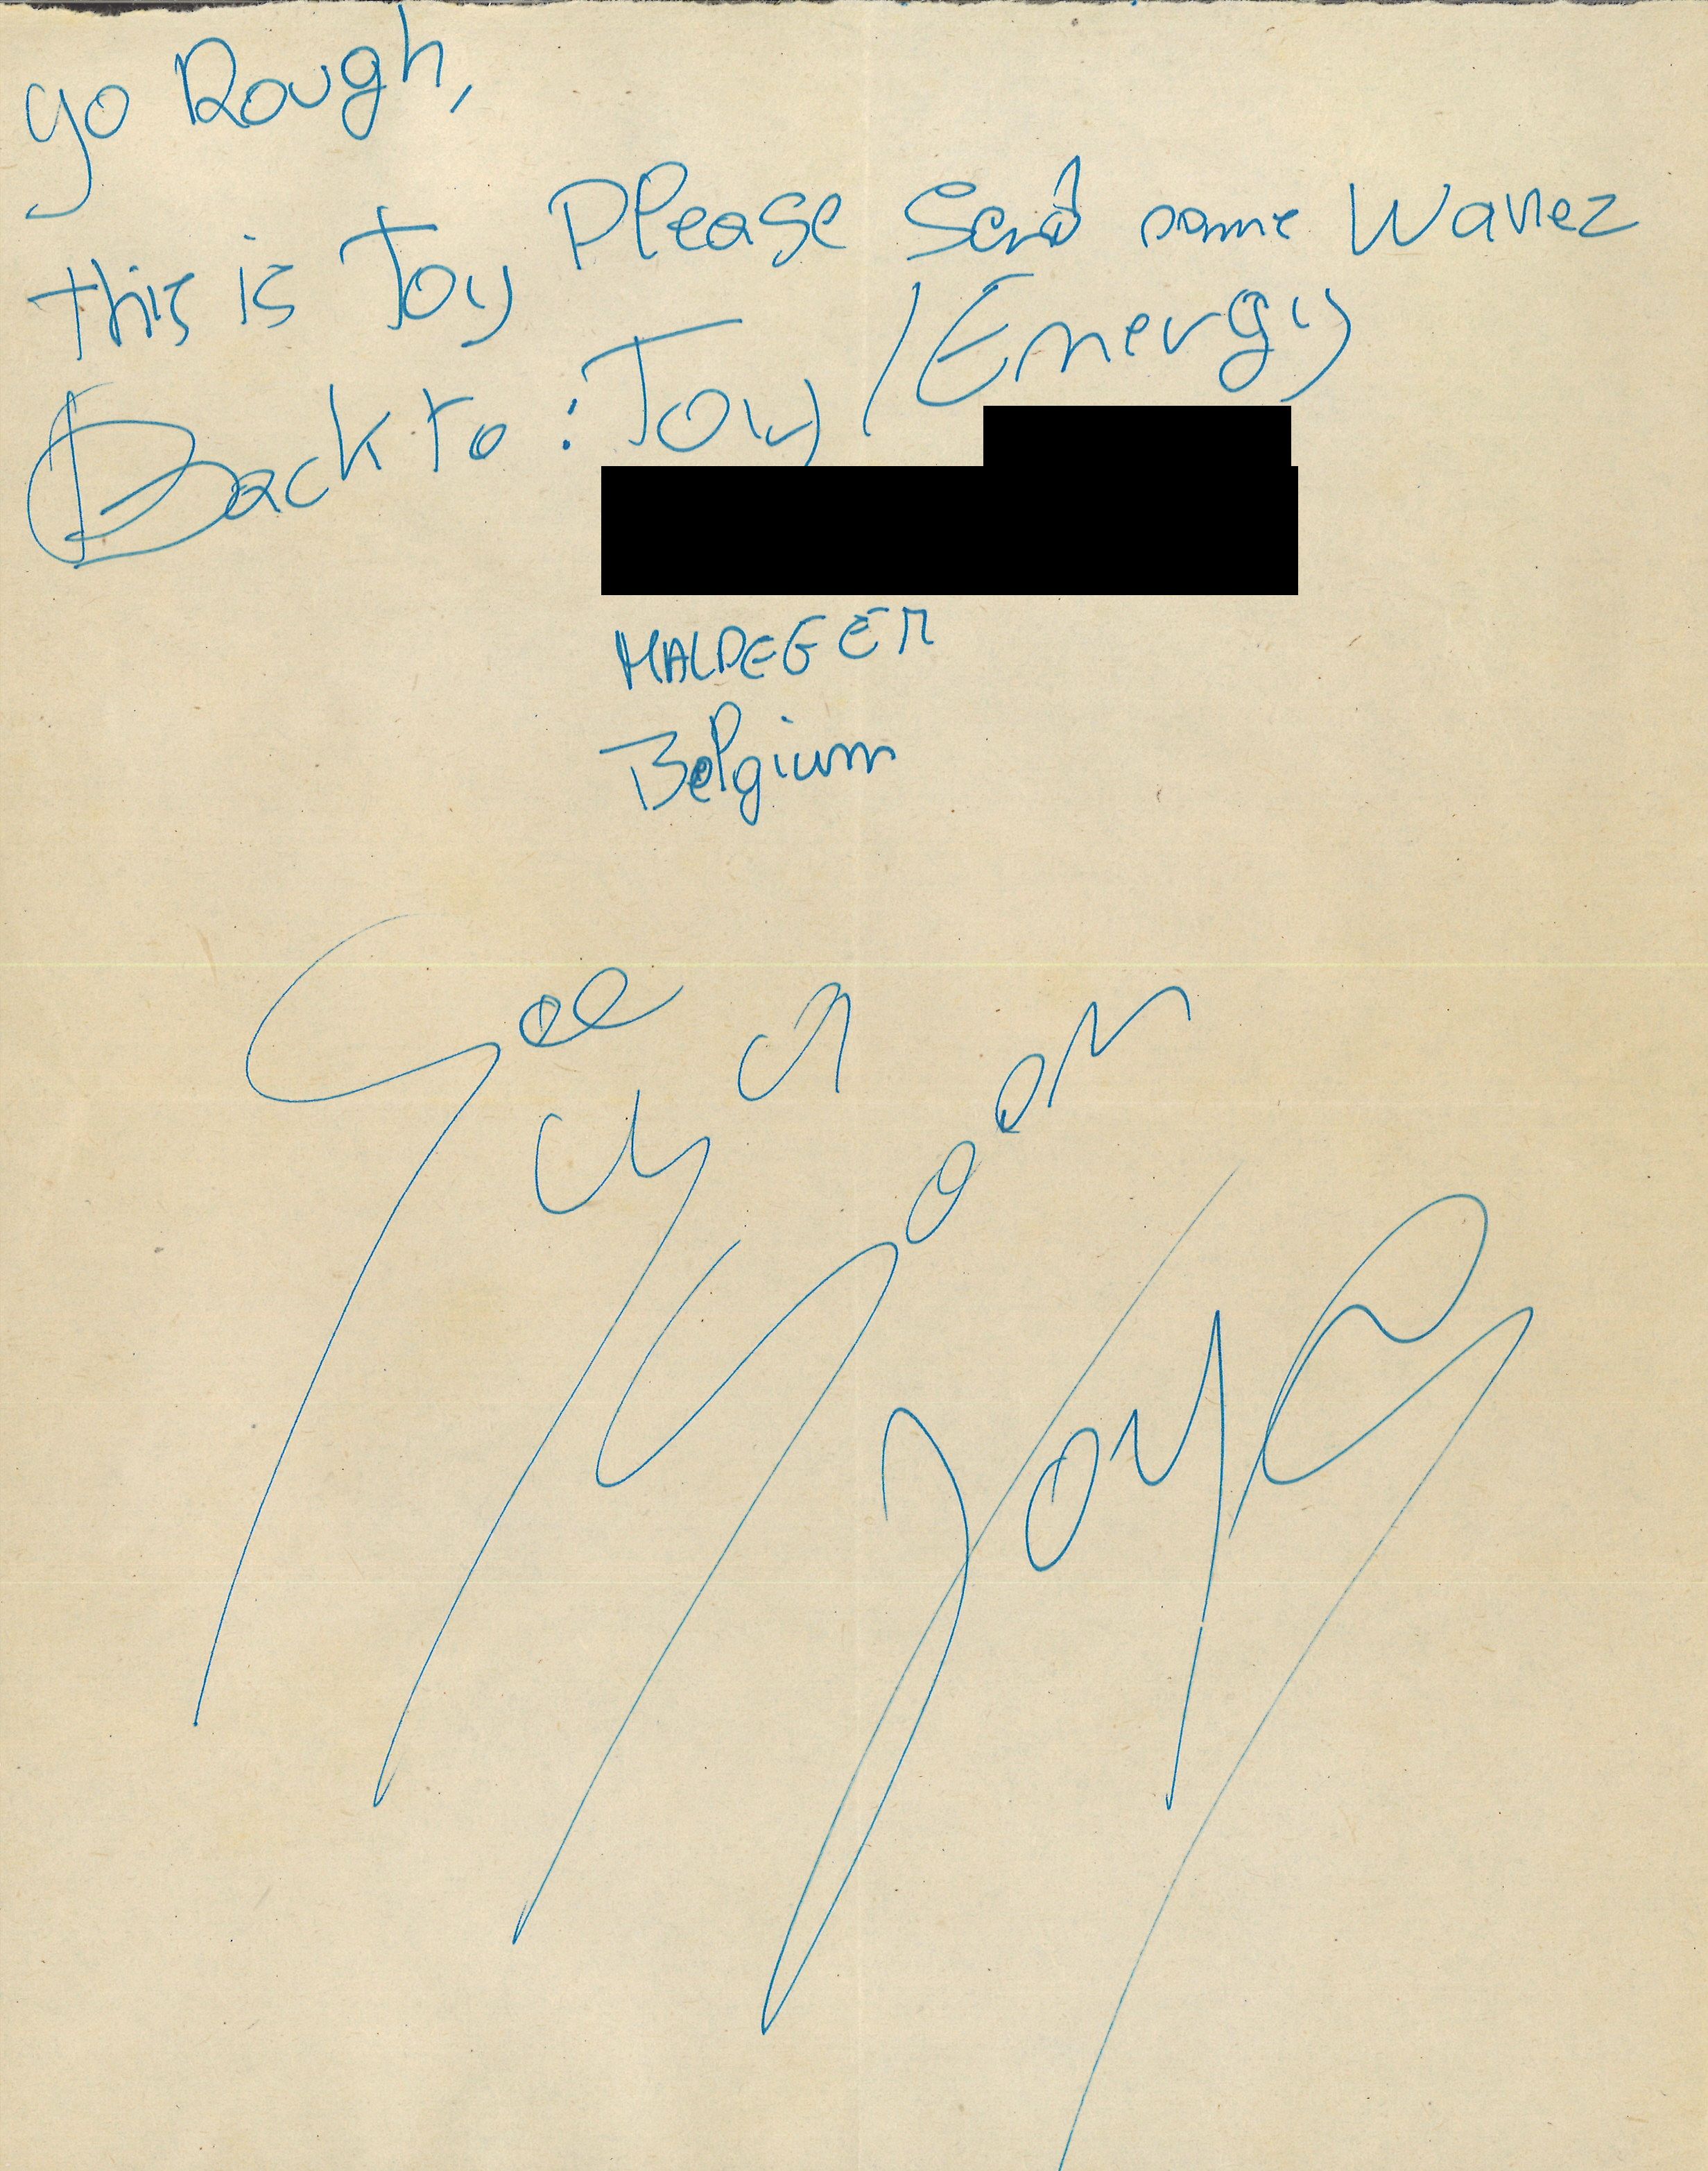 yo Rough,
this is Toy Please Send some Wavez
Back to : Toy / Energy
MALDEGEM
Belgium
See ya Soon